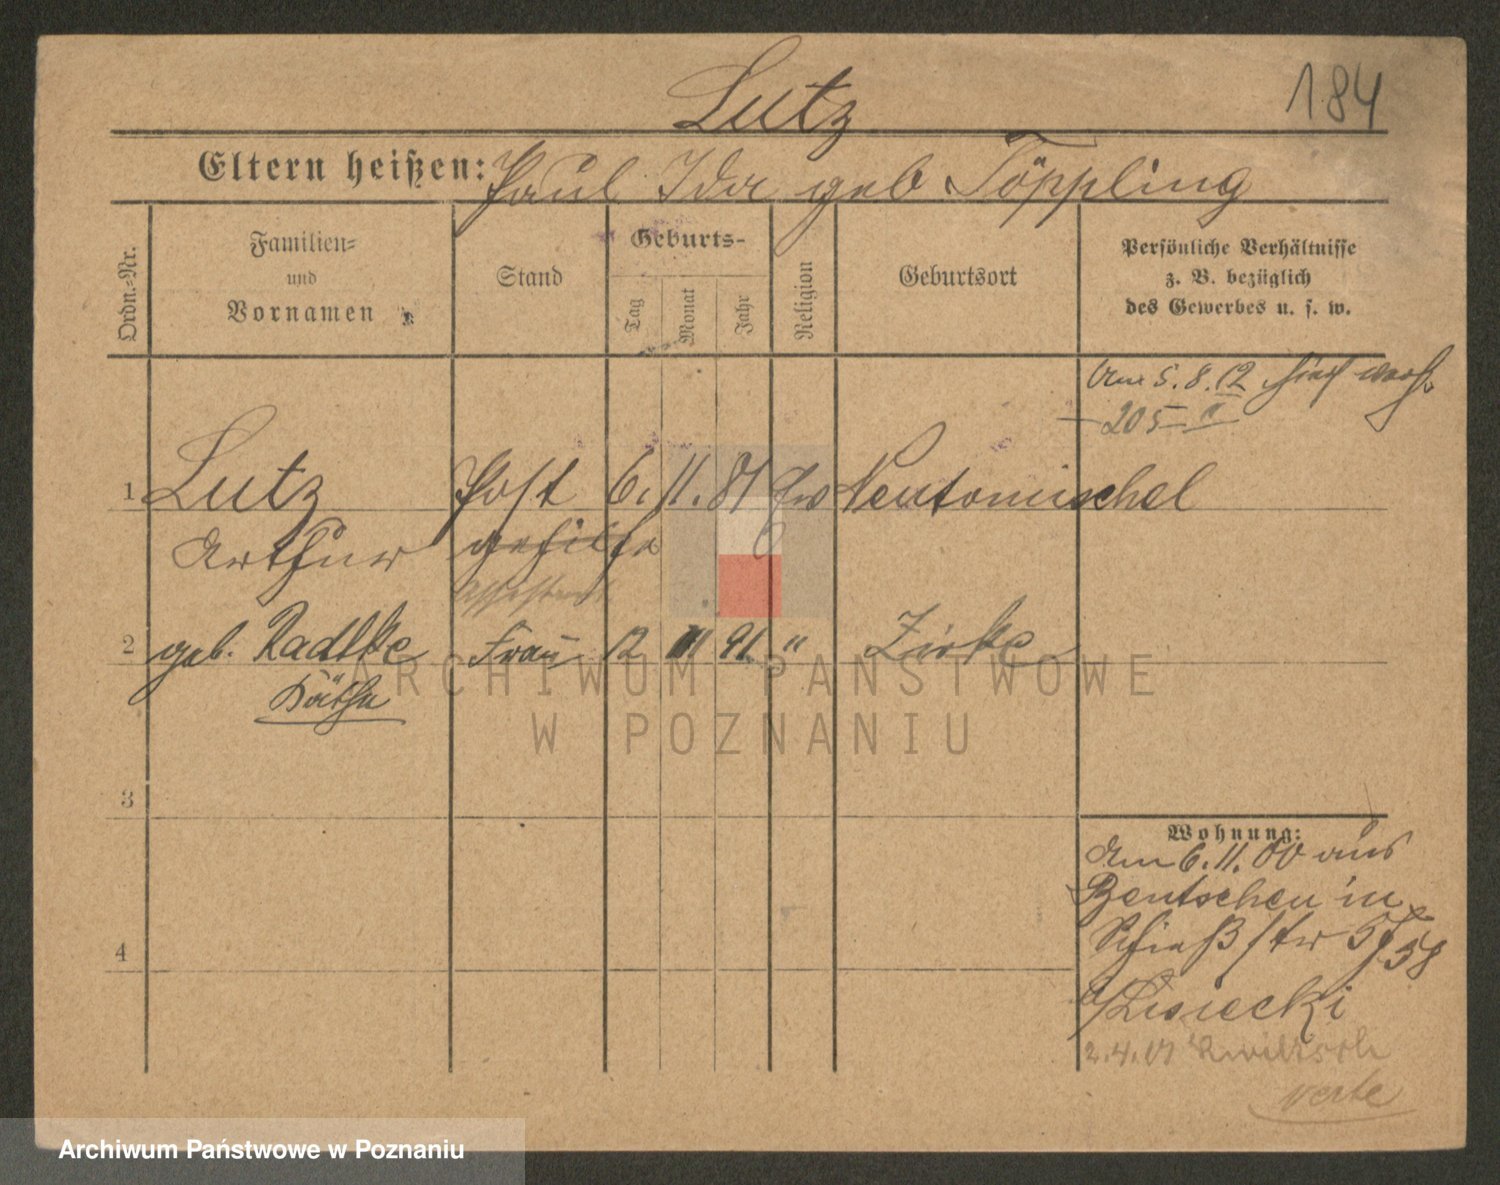 184
Lutz
Eltern heißen: Paul Ida geb Töppling
Ordn.-Nr.
Familien-
und
Vornamen
Stand
Geburts-
Tag
Monat
Jahr
Religion
Geburtsort
Persönliche Verhältnisse
z. B. bezüglich
des Gewerbes u. s. w.
Am 5. 8. 12
205
1 Lutz Post 6. 11. 81 Neutomischel
Arthur gehilfe
Assistent
2 geb. Radtke Frau 12 III 91 " Zirke
Käthe
3
4
Wohnung:
Am 6. 11. 00 aus
Bentschen in
58
Lisiecki
2. 4. 01
verte
ARCHIWUM PAŃSTWOWE
W POZNANIU
Archiwum Państwowe w Poznaniu